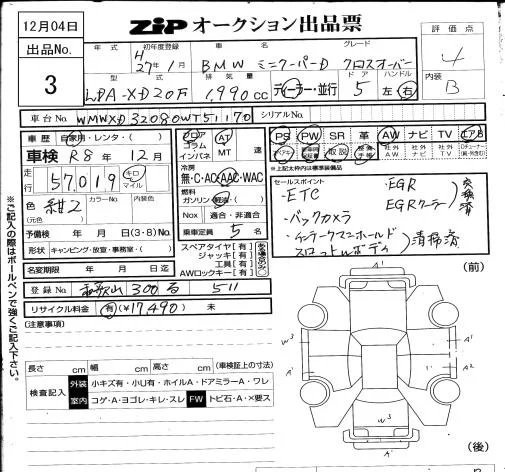 12月04日
ZIP オークション出品票
評価点
4
出品No.
3
年式 初年度登録 車名 グレード
H27年1月 BMW ミニクーパーD クロスオーバー
内装
B
型式 排気量 ドア ハンドル
LDA-XD20万 1,990cc ディーラー・並行 5 左 右
車台No. WMWXD32080WT51170 シリアルNo.
車歴 自家用・レンタ・( )
車検 R8年12月
走行 57,019 キロ マイル
色 (元色) 紺2 カラーNo. 内装色
予備検 年 月 日(3・8)No.
形状 キャンピング・放宣・事務室・( )
名変期限 年 月 日迄
登録No. 和歌山 300 る 511
リサイクル料金 有(¥17,490) 未
(注意事項)
フロア コラム インパネ AT MT 速
冷房
無・C・AC・AAC・WAC
燃料
ガソリン 軽油・( )
Nox 適合・非適合
乗車定員 5 名
スペアタイヤ【有】
ジャッキ【有】
工具【有】
AWロックキー【有】
PS PW SR 革 AW ナビ TV エアB
取説 整備手帳 社外AW 社外ナビ 社外TV
*上記太枠内は標準装備品
セールスポイント
・ETC
・バックカメラ
・EGR
EGRクーラー 交換済
・インテークマニホールド
スロットルボディ 清掃済
※ご記入の際はボールペンで強くご記入下さい。
(前)
W3
A'
A1
A2
W3
A'
(後)
長さ cm 幅 cm 高さ cm (車検証上の寸法)
検査記入 外装 小キズ有・小U有・ホイルA・ドアミラーA・ワレ
室内 コゲ・A・ヨゴレ・キレ・スレ FW トビ石・A・×要ス